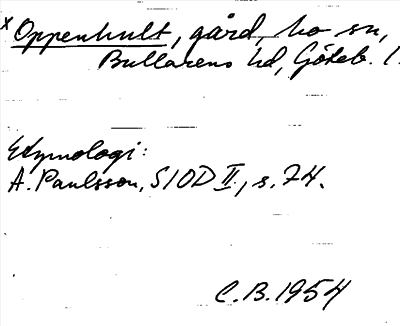 x Oppenhult, gård, ho sn,
Bullarens hd, Göteb. l.
Etymologi:
A. Paulsson, SIOD II, s. 74.
C.B. 1954